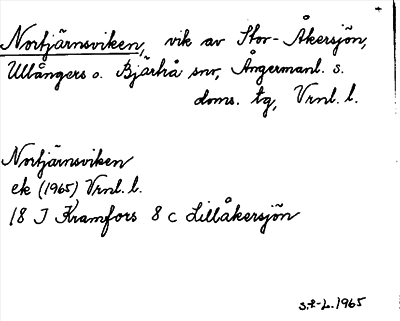 Nortjärnsviken, vik av Stor-Åkersjön,
Ullångers o. Bjärtrå snr, Ångermanl. s.
doms. tg, Vrnl. l.
Nortjärnsviken
ek (1965) Vrnl. l.
18 J Kramfors 8 c Lillåkersjön
s.f-L. 1965